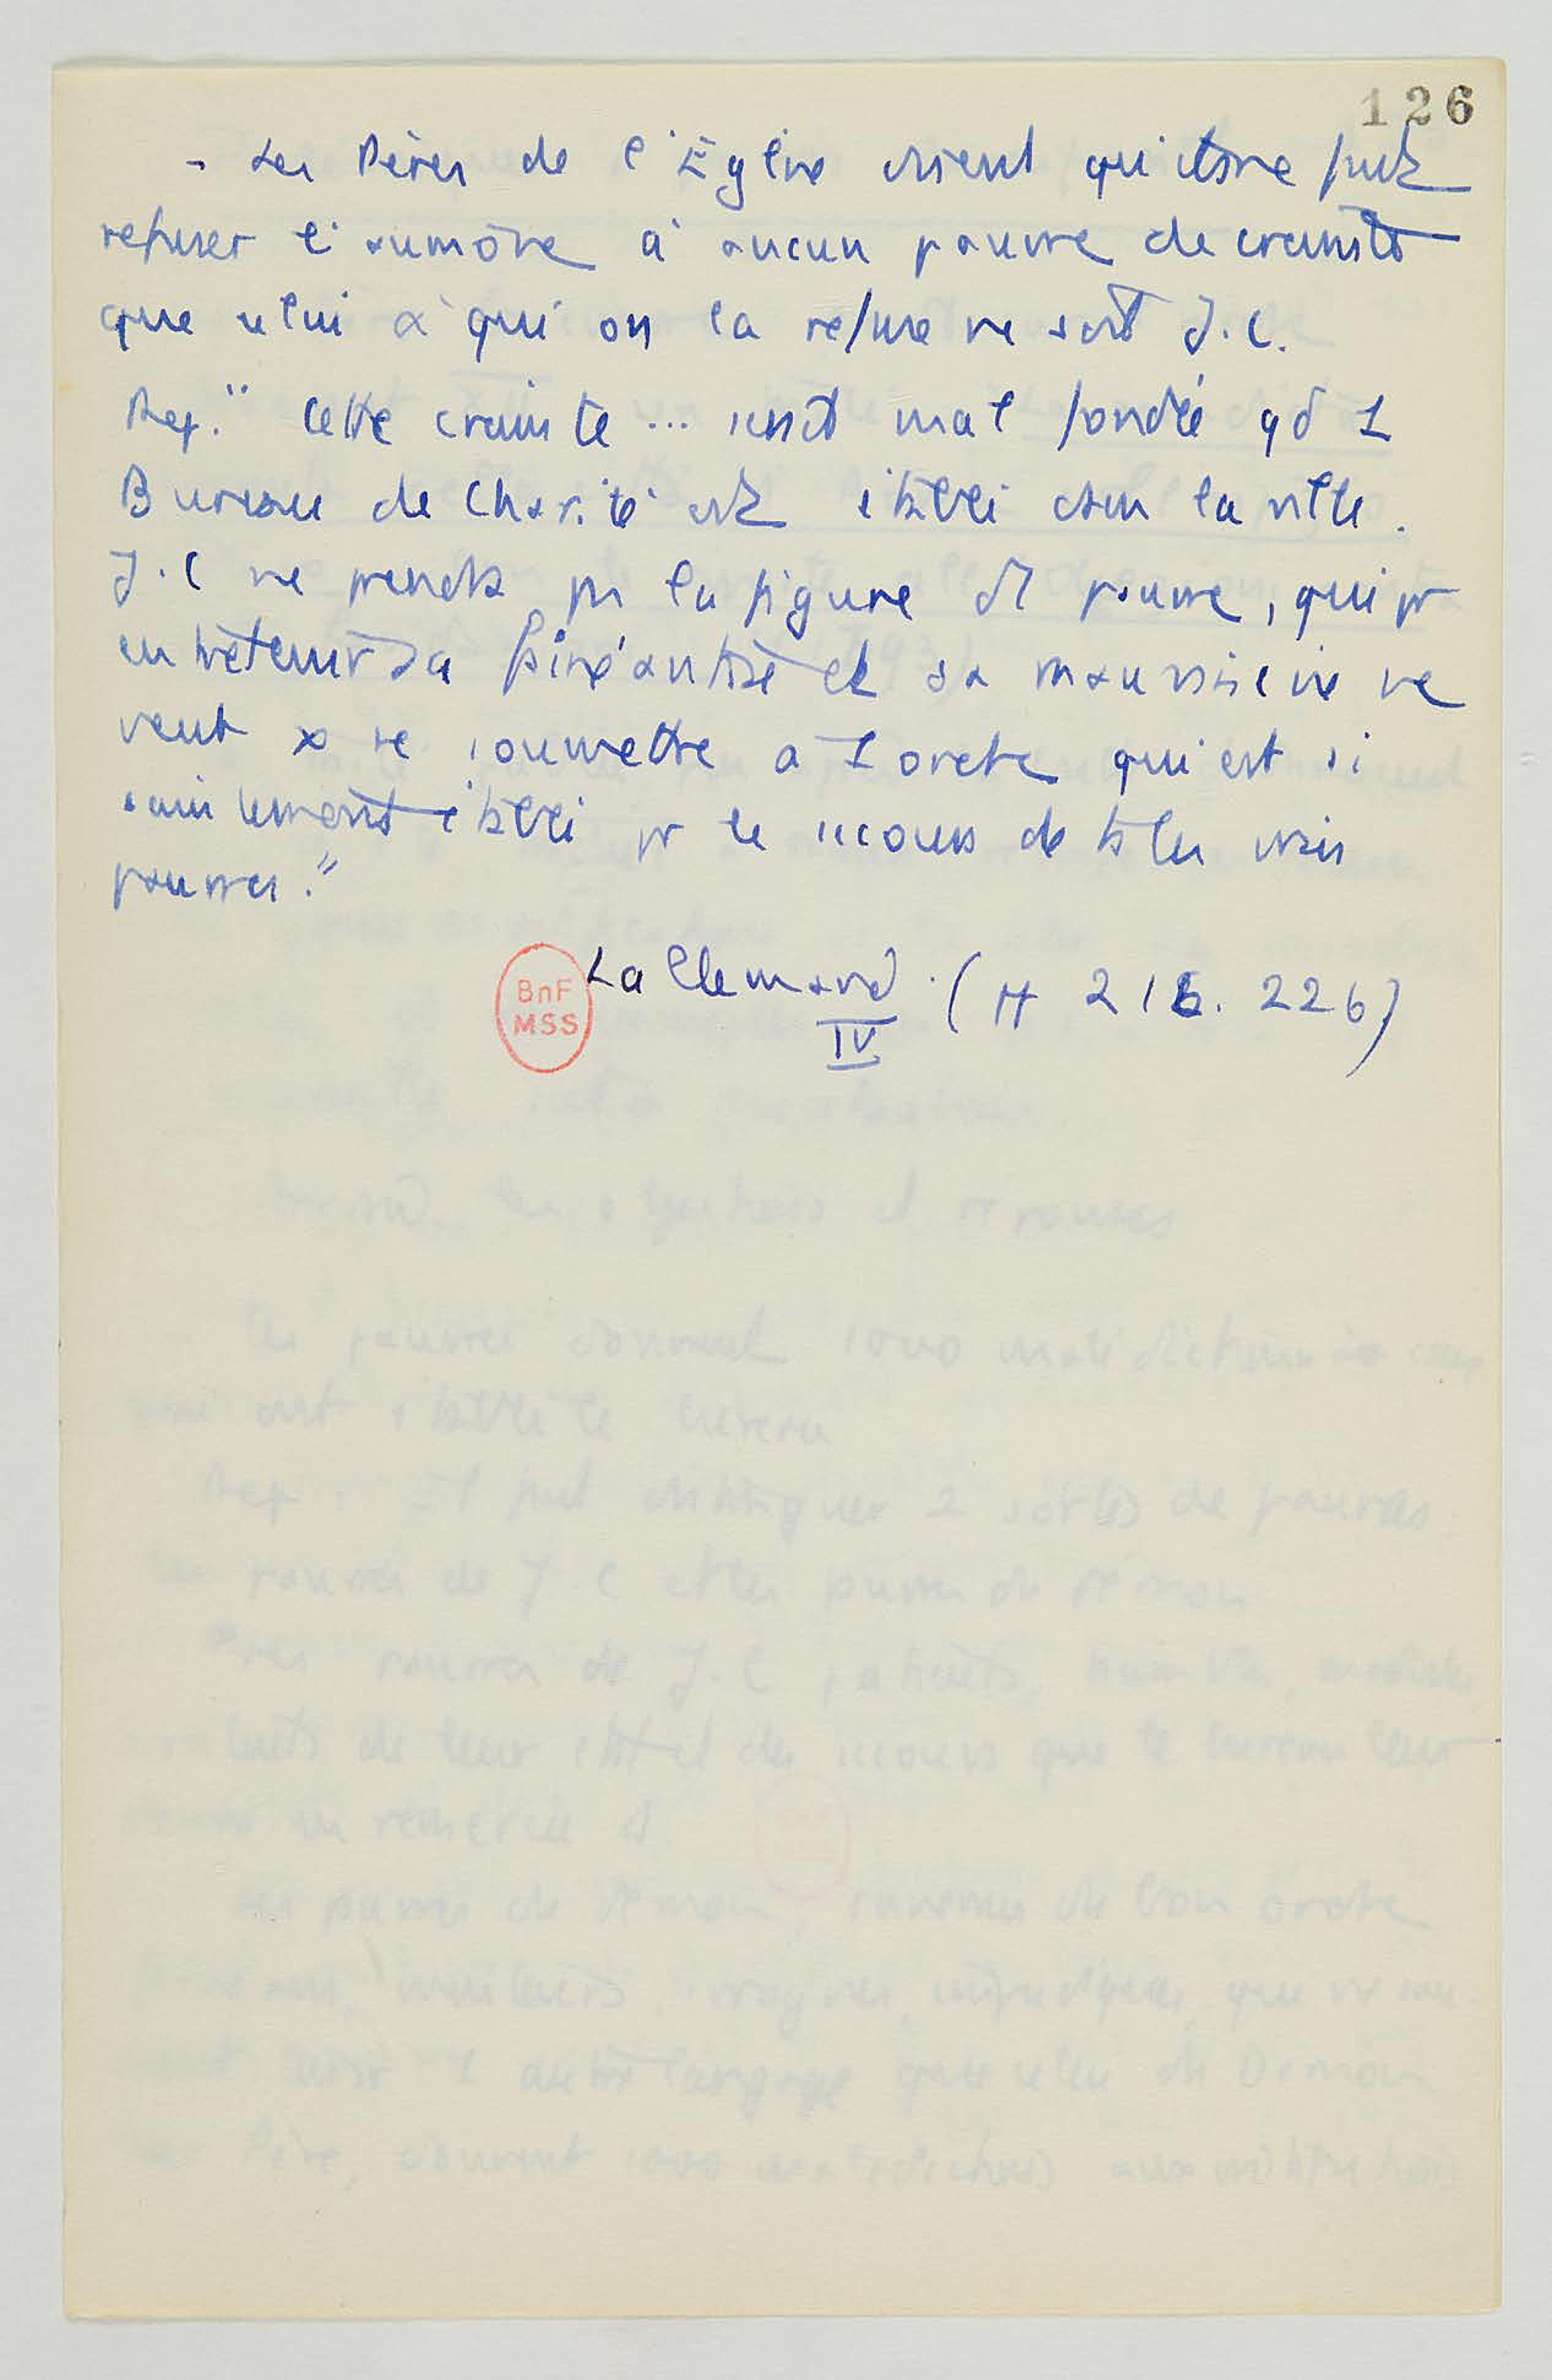 126
- Les Pères de l'Église disent qu'il ne faut
refuser l'aumône à aucun pauvre de crainte
que celui à qui on la refuse ne soit J.C.
Rep." Cette crainte ... serait mal fondée qd 1
Bureau de Charité est établi dans la ville.
J.C ne prend pas la figure d'1 pauvre, qui pr
entretenir sa fainéantise et sa mauvaise vie ne
veut x se soumettre à 1 ordre qui est si
saintement établi pr le secours de ts les vrais
pauvres."
BnF
MSS
Lallemand. (H 216. 226)
IV